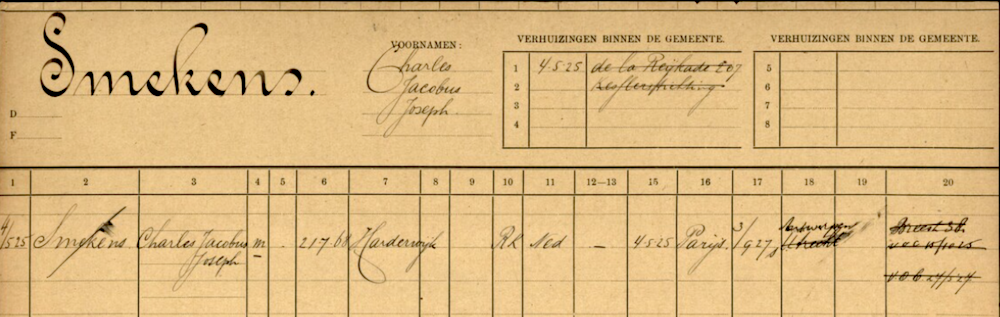 Smekens.
D
F
VOORNAMEN:
Charles
Jacobus
Joseph
VERHUIZINGEN BINNEN DE GEMEENTE.
1 4-5-25 de la Reijkade 207
2
3
4
VERHUIZINGEN BINNEN DE GEMEENTE.
5
6
7
8
1 2 3 4 5 6 7 8 9 10 11 12—13 15 16 17 18 19 20
4/5 25 Smekens Charles Jacobus m - 21-7-68 Harderwijk RK Ned — 4-5-25 Parijs. 3/9 27 Antwerpen
Joseph Utrecht